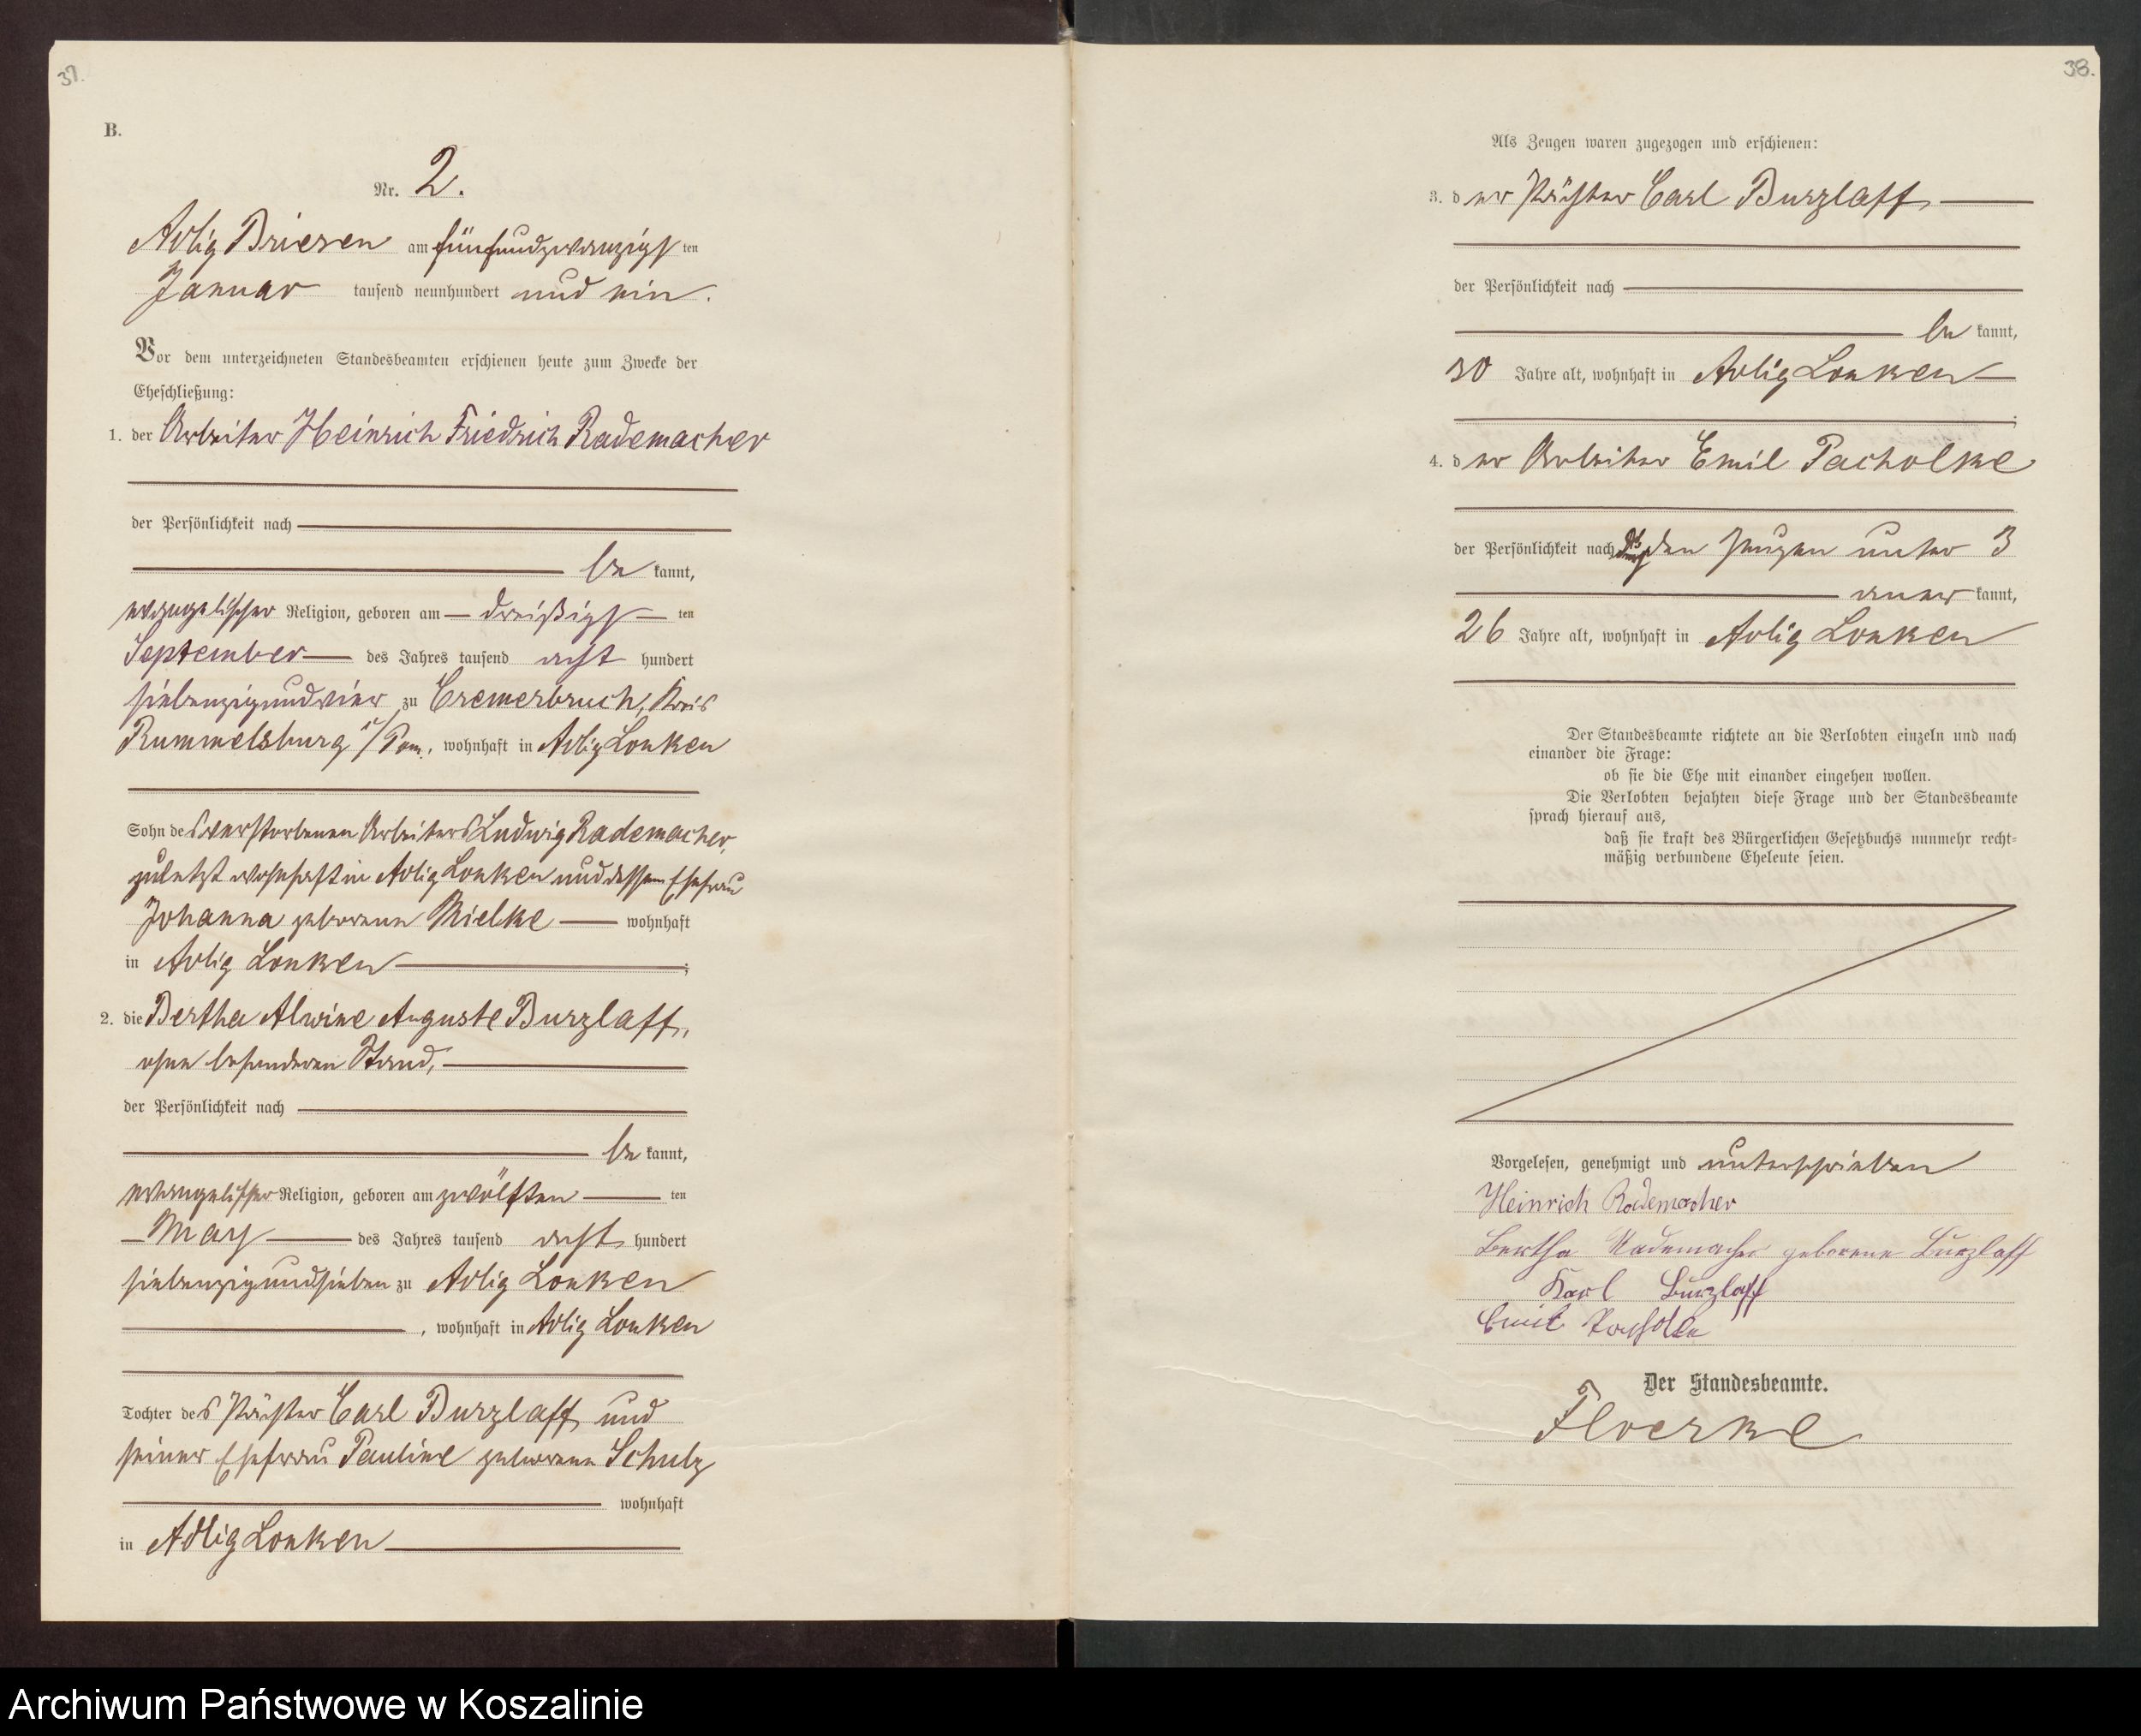 37.
B.
Nr. 2.
Adlig Briesen am fünfundzwanzigsten
Januar tausend neunhundert und ein.
Vor dem unterzeichneten Standesbeamten erschienen heute zum Zwecke der
Eheschließung:
1. der Arbeiter Heinrich Friedrich Rademacher
der Persönlichkeit nach
be kannt,
evangelischer Religion, geboren am dreißigsten
September des Jahres tausend acht hundert
siebenzigundvier zu Cremerbruch, Kreis
Rummelsburg i/Pom., wohnhaft in Adlig Lonken
Sohn des verstorbenen Arbeiters Ludwig Rademacher,
zuletzt wohnhaft in Adlig Lonken und dessen Ehefrau
Johanna geborene Mielke wohnhaft
in Adlig Lonken ;
2. die Bertha Alwine Auguste Burzlaff,
ohne besonderen Stand,
der Persönlichkeit nach
be kannt,
evangelischer Religion, geboren am zwölften ten
May des Jahres tausend acht hundert
siebenzigundsieben zu Adlig Lonken
, wohnhaft in Adlig Lonken
Tochter des Pächter Carl Burzlaff und
seiner Ehefrau Pauline geborene Schulz
wohnhaft
in Adlig Lonken
38.
Als Zeugen waren zugezogen und erschienen:
3. der Pächter Carl Burzlaff
der Persönlichkeit nach
be kannt,
50 Jahre alt, wohnhaft in Adlig Lonken
;
4. der Arbeiter Emil Pacholke
der Persönlichkeit nach den Zeugen unter 3
aner kannt,
26 Jahre alt, wohnhaft in Adlig Lonken
Der Standesbeamte richtete an die Verlobten einzeln und nach
einander die Frage:
ob sie die Ehe mit einander eingehen wollen.
Die Verlobten bejahten diese Frage und der Standesbeamte
sprach hierauf aus,
daß sie kraft des Bürgerlichen Gesetzbuchs nunmehr recht-
mäßig verbundene Eheleute seien.
Vorgelesen, genehmigt und unterschrieben
Heinrich Rademacher
Bertha Rademacher geborene Burzlaff
Karl Burzlaff
Emil Pacholke
Der Standesbeamte.
Floerke
Archiwum Państwowe w Koszalinie